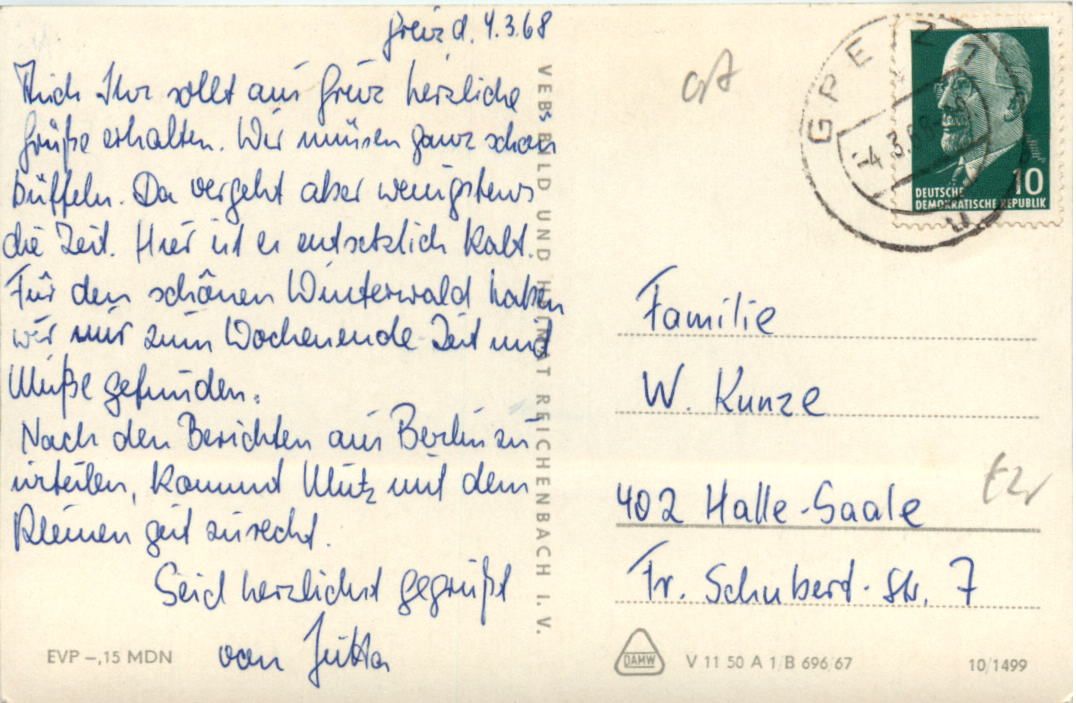 Greiz d. 4.3.68
Auch Ihr sollt aus Greiz herzliche
Grüße erhalten. Wir müssen ganz schön
büffeln. Da vergeht aber wenigstens
die Zeit. Hier ist es entsetzlich kalt.
Für den schönen Winterwald haben
wir nur zum Wochenende Zeit und
Muße gefunden.
Nach den Berichten aus Berlin zu
urteilen, kommt Mutz mit dem
Kleinen gut zurecht.
Seid herzlichst gegrüßt
von Jutta
EVP –,15 MDN
VEB BILD UND HEIMAT REICHENBACH I. V.
GREIZ 1
-4.3.68
DEUTSCHE
DEMOKRATISCHE REPUBLIK
10
Familie
W. Kunze
402 Halle-Saale
Fr. Schubert-Str. 7
DAMW
V 11 50 A 1/B 696/67
10/1499